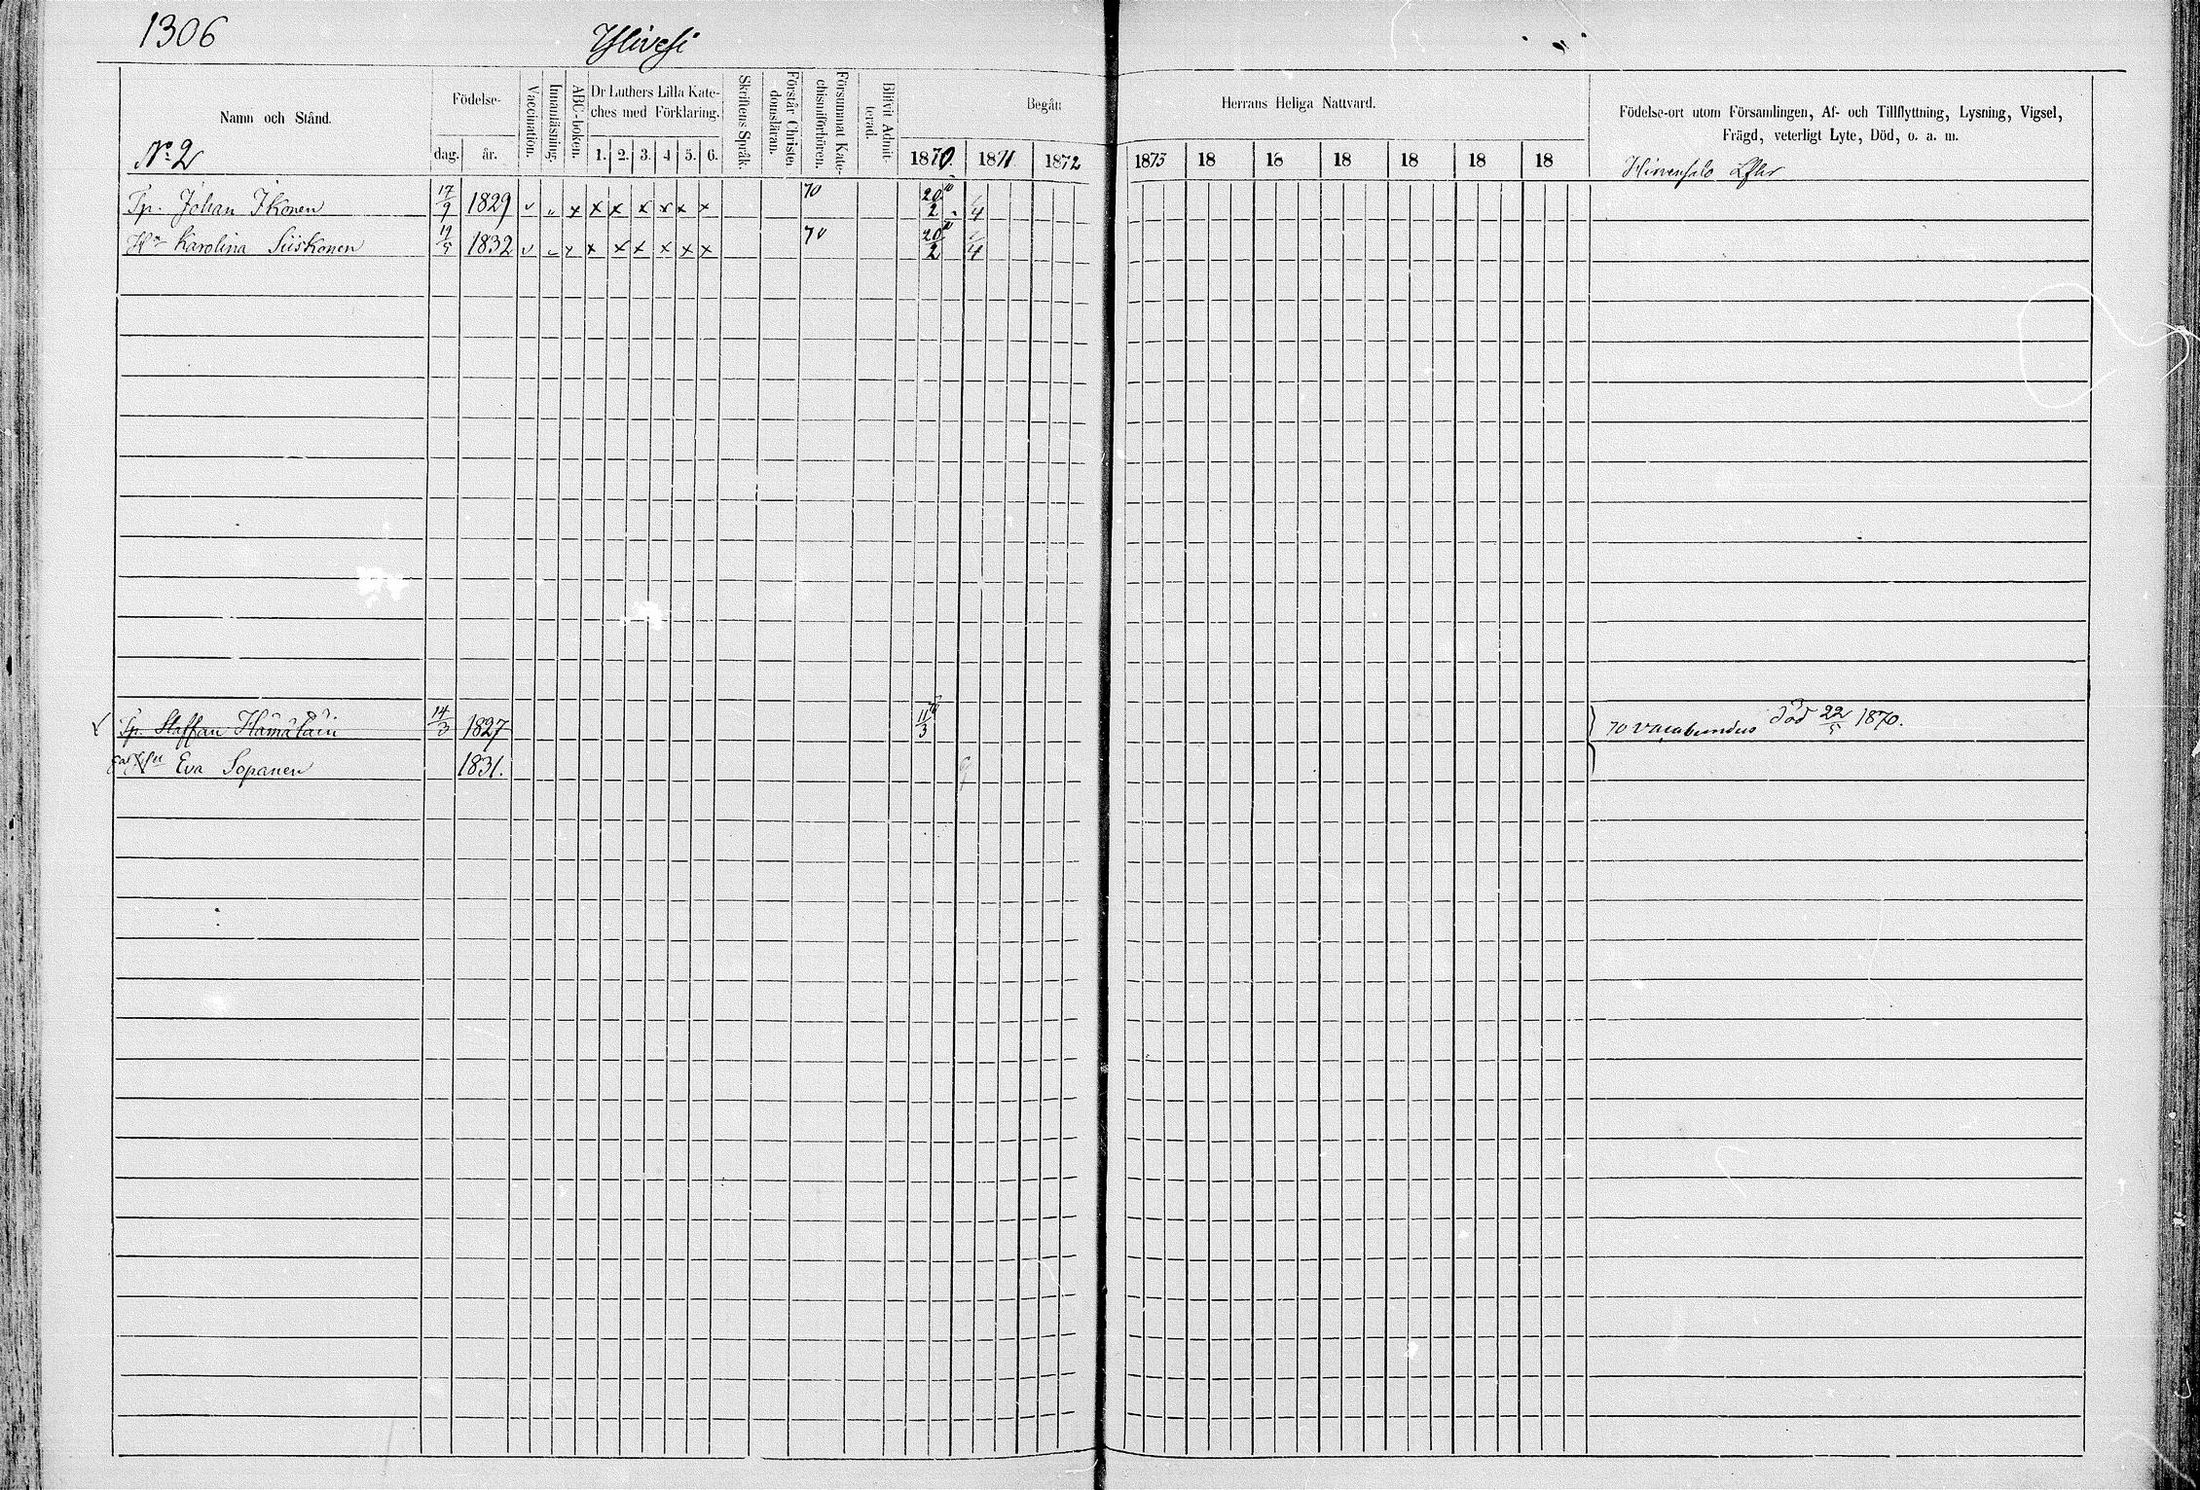 1306
Ylivesi
Namn och Stånd.
Födelse-
dag.
år.
Vaccination.
Innanläsning.
ABC-boken.
Dr Luthers Lilla Kate-
ches med Förklaring.
1. 2. 3. 4 5. 6.
Skriftens Språk.
Förstår Christen-
domsläran.
Försummat Kate-
chismiförhören.
Blifvit Admit-
terad.
Begått
Herrans Heliga Nattvard.
1870. 1871 1872 1873 18 18 18 18 18 18
Födelse-ort utom Församlingen, Af- och Tillflyttning, Lysning, Vigsel,
Frägd, veterligt Lyte, Död, o. a. m.
No 2
Tp. Johan Ikonen 17/9 1829 v x x x x x x x 70 20/2 4
Hu Karolina Siiskonen 19/5 1832 v x x x x x x x 70 20/2 4
Tp. Staffan Hämäläin 14/3 1827 11/3 70 död 22/5 1870.
Eva Sopanen 1831.